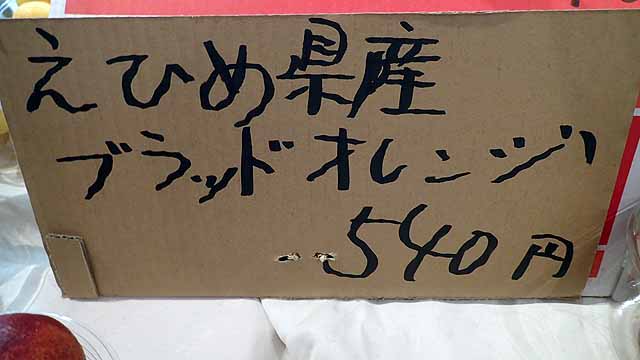 えひめ県産
ブラッドオレンジ
540円